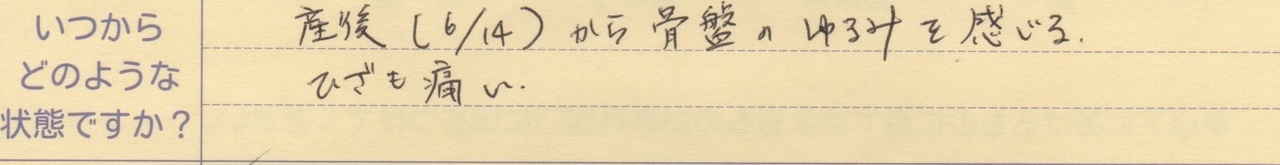 いつから
どのような
状態ですか？
産後（6/14）から骨盤のゆるみを感じる.
ひざも痛い.